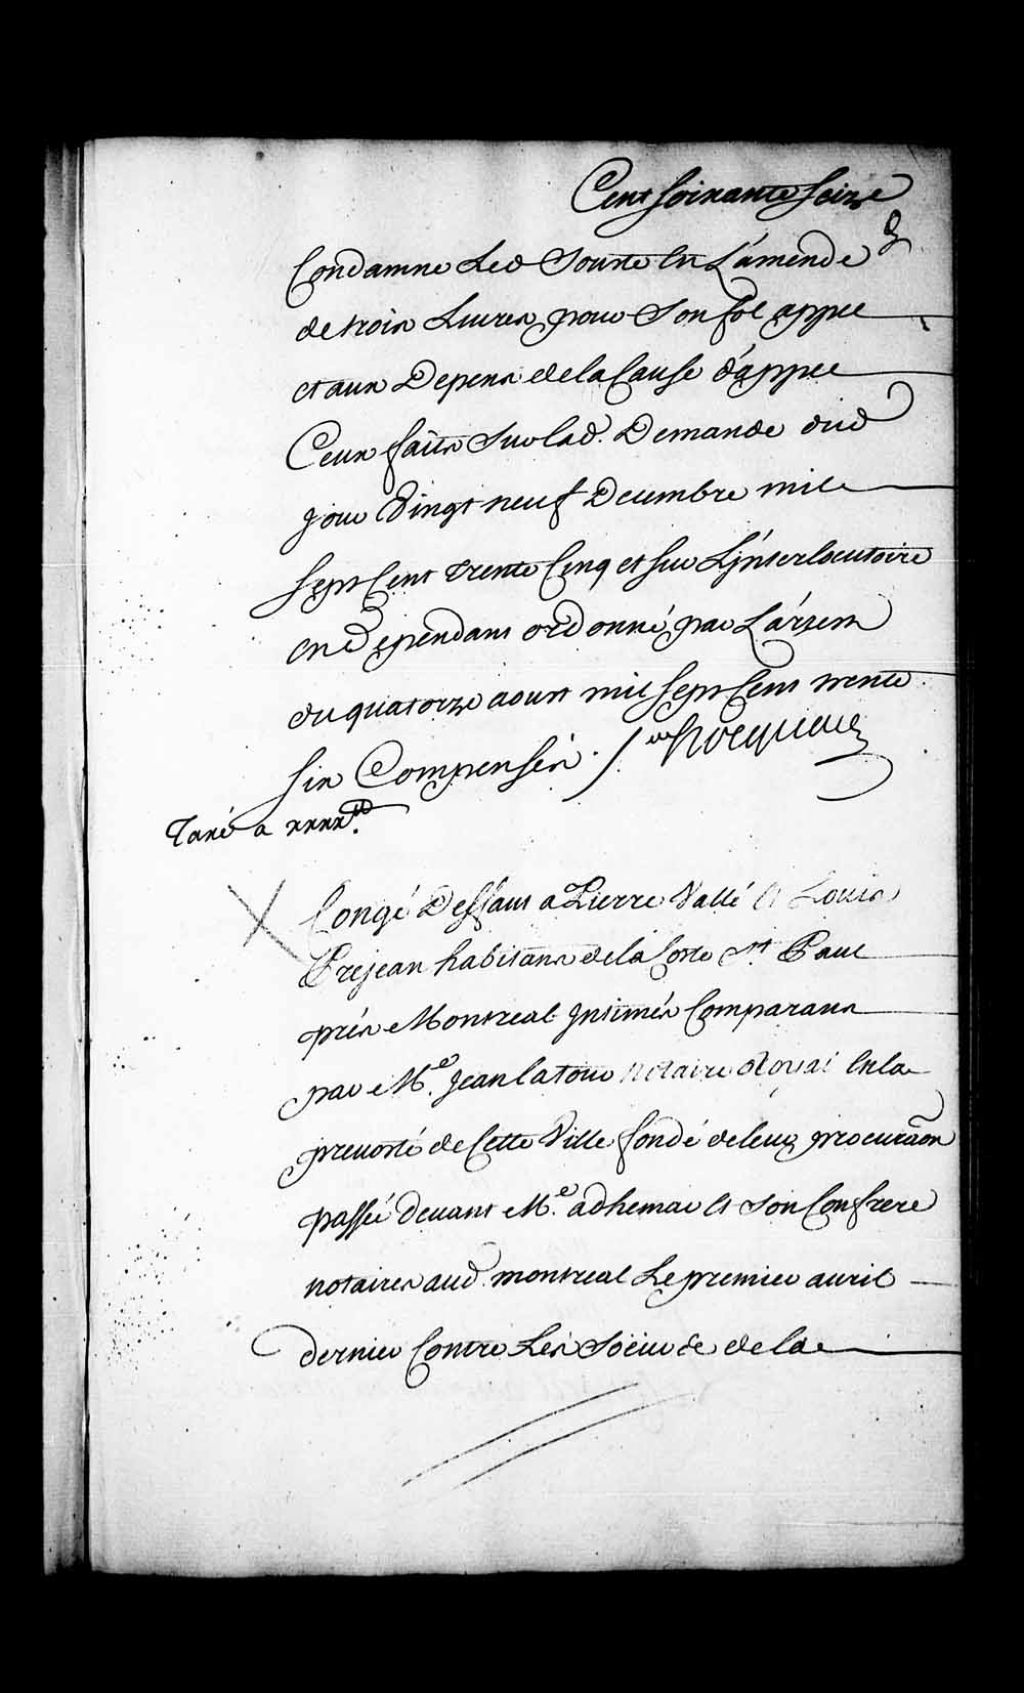 Cent soixante seize
Condamne Led Sourte en L'amende
de trois Livres pour Son fol appel
et aux Depens de la Cause d'appel
Ceux faits Sur lad. Demande dud
jour Vingt neuf Decembre mil
Sept Cent trente Cinq et sur L'jnterlocutoire
en dependant ordonné par L'arrest
du quatorze aoust mil Sept Cent trente
six Compensés ./. Hocquart
Taxé a xxxx lt.
Congé Deffaut a Pierre Vallé et Louis
Prejean habitans de la Coste St. Paul
prés Montreal jntimés Comparans
par Me. Jean latour notaire Royal en la
prevosté de Cette Ville fondé de leur procuraon
passée devant Me. adhemar et son Confrere
notaires aud. montreal Le premier avril
dernier Contre Les Soeurs de la